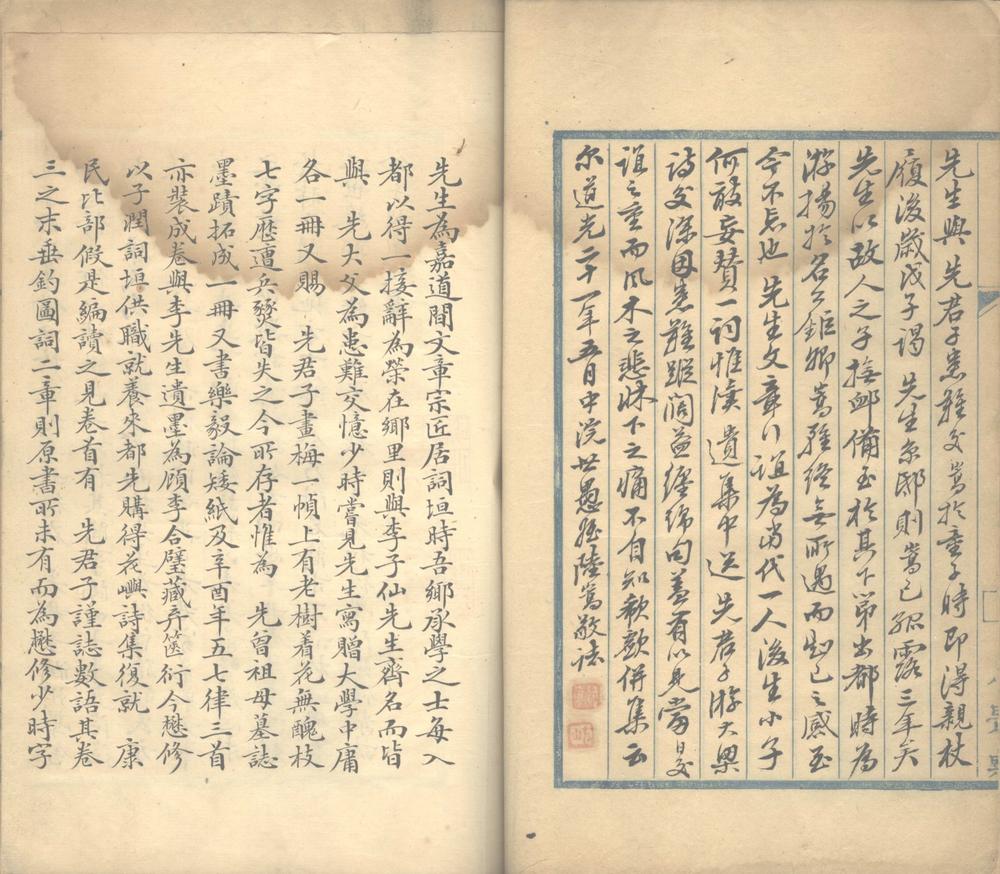 先生與 先君子患難交嵩於童子時即得親杖
履後歲戊子謁 先生京邸則嵩已孤露三年矣
先生以故人之子撫卹備至於其下第出都時為
游揚於名公鉅卿嵩雖終無所遇而知己之感至
今不忘也 先生文章行誼為當代一人後生小子
何敢妄贊一詞惟讀 遺集中送 先君子游大梁
詩交深因患難蹤闊益纏綿句蓋有以見當日交
誼之重而風木之悲牀下之痛不自知欷歔併集云
尔道光二十一年五月中浣世愚姪陸嵩敬誌
先生為嘉道間文章宗匠居詞垣時吾鄉承學之士每入
都以得一接辭為榮在鄉里則與李子仙先生齊名而皆
與 先大父為患難交憶少時嘗見先生寫贈大學中庸
各一冊又賜 先君子畫梅一幀上有老樹着花無醜枝
七字歷遭兵燹皆失之今所存者惟為 先曾祖母墓誌
墨蹟拓成一冊又書樂毅論矮紙及辛酉年五七律三首
亦裝成卷與李先生遺墨為顧李合璧藏弆篋衍今懋修
以子潤詞垣供職就養來都先購得花嶼詩集復就 康
民比部假是編讀之見卷首有 先君子謹誌數語其卷
三之末垂釣圖詞二章則原書所未有而為懋修少時字